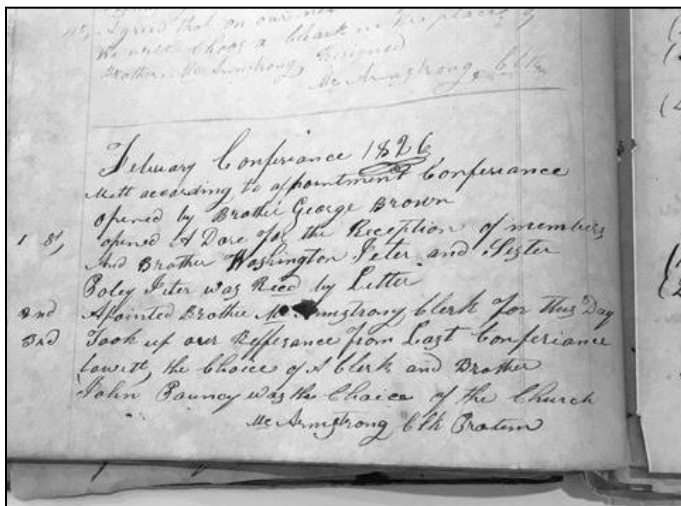 4th, Agreed that on our next
We will Choos a Clark in the place of
Brother Mc Armstrong, Resigned
Mc Armstrong Clk
February Conferiance 1826
Mett according to appointment Conferiance
opened by Brother George Brown
1 St, opened A Dore for the Reception of members
And Brother Washington Jeter and Sister
Poley Jeter was Recd by Letter
2nd Apointed Brother Mc Armstrong Clerk for this Day
3rd Took up our Refferance from Last Conferiance
towitt, the Choice of A Clerk and Brother
John Pauncy was the Choice of the Church
Mc Armstrong Clk Protem